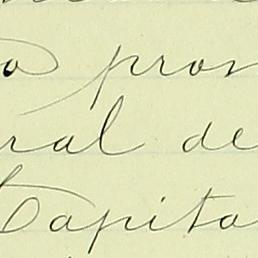 o pron
ral de
Capita